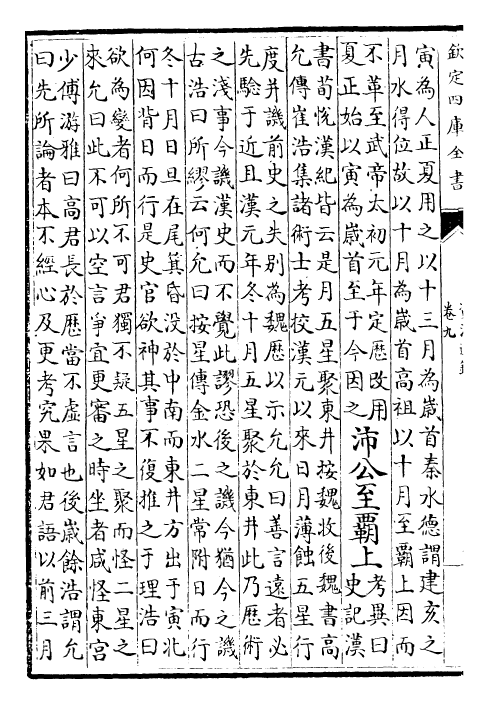 欽定四庫全書
卷九
寅為人正夏用之以十三月為嵗首秦水德謂建亥之
月水得位故以十月為嵗首高祖以十月至霸上因而
不革至武帝太初元年定歷改用
夏正始以寅為嵗首至于今因之
沛公至霸上
考異曰
史記漢
書荀恱漢紀皆云是月五星聚東井按魏收後魏書高
允傳崔浩集諸術士考校漢元以來日月薄蝕五星行
度并譏前史之失别為魏歷以示允允曰善言遠者必
先驗于近且漢元年冬十月五星聚於東井此乃歷術
之淺事今譏漢史而不覺此謬恐後之譏今猶今之譏
古浩曰所繆云何允曰按星傳金水二星常附日而行
冬十月日旦在尾箕昏没於中南而東井方出于寅北
何因背日而行是史官欲神其事不復推之于理浩曰
欲為變者何所不可君獨不疑五星之聚而怪二星之
來允曰此不可以空言爭宜更審之時坐者咸怪東宮
少傅游雅曰高君長於歷當不虛言也後嵗餘浩謂允
曰先所論者本不經心及更考究果如君語以前三月